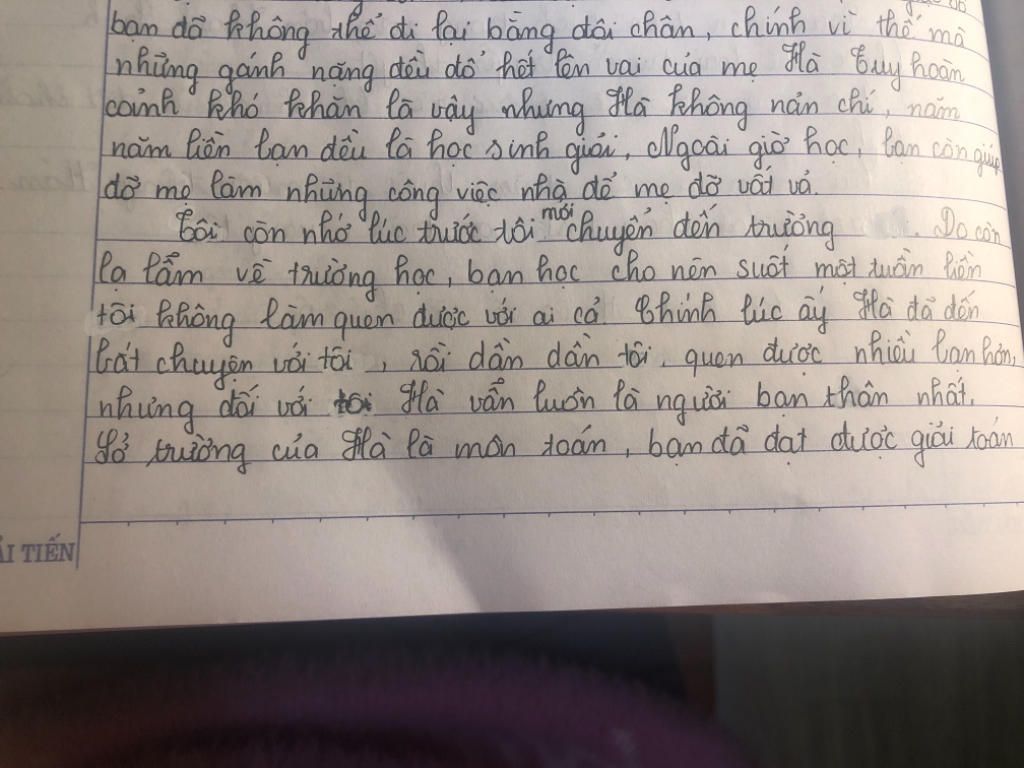 bạn đã không thể đi lại bằng đôi chân, chính vì thế mà
những gánh nặng đều đổ hết lên vai của mẹ Hà Tuy hoàn
cảnh khó khăn là vậy nhưng Hà không nản chí, năm
năm liền bạn đều là học sinh giỏi. Ngoài giờ học, bạn còn giúp
đỡ mẹ làm những công việc nhà để mẹ đỡ vất vả.
Tôi còn nhớ lúc trước tôi mới chuyển đến trường . Do còn
lạ lẫm về trường học, bạn học cho nên suốt một tuần liền
tôi không làm quen được với ai cả. Chính lúc ấy Hà đã đến
bắt chuyện với tôi, rồi dần dần tôi quen được nhiều bạn hơn,
nhưng đối với tôi Hà vẫn luôn là người bạn thân nhất.
Sở trường của Hà là môn toán, bạn đã đạt được giải toán
ẢI TIẾN